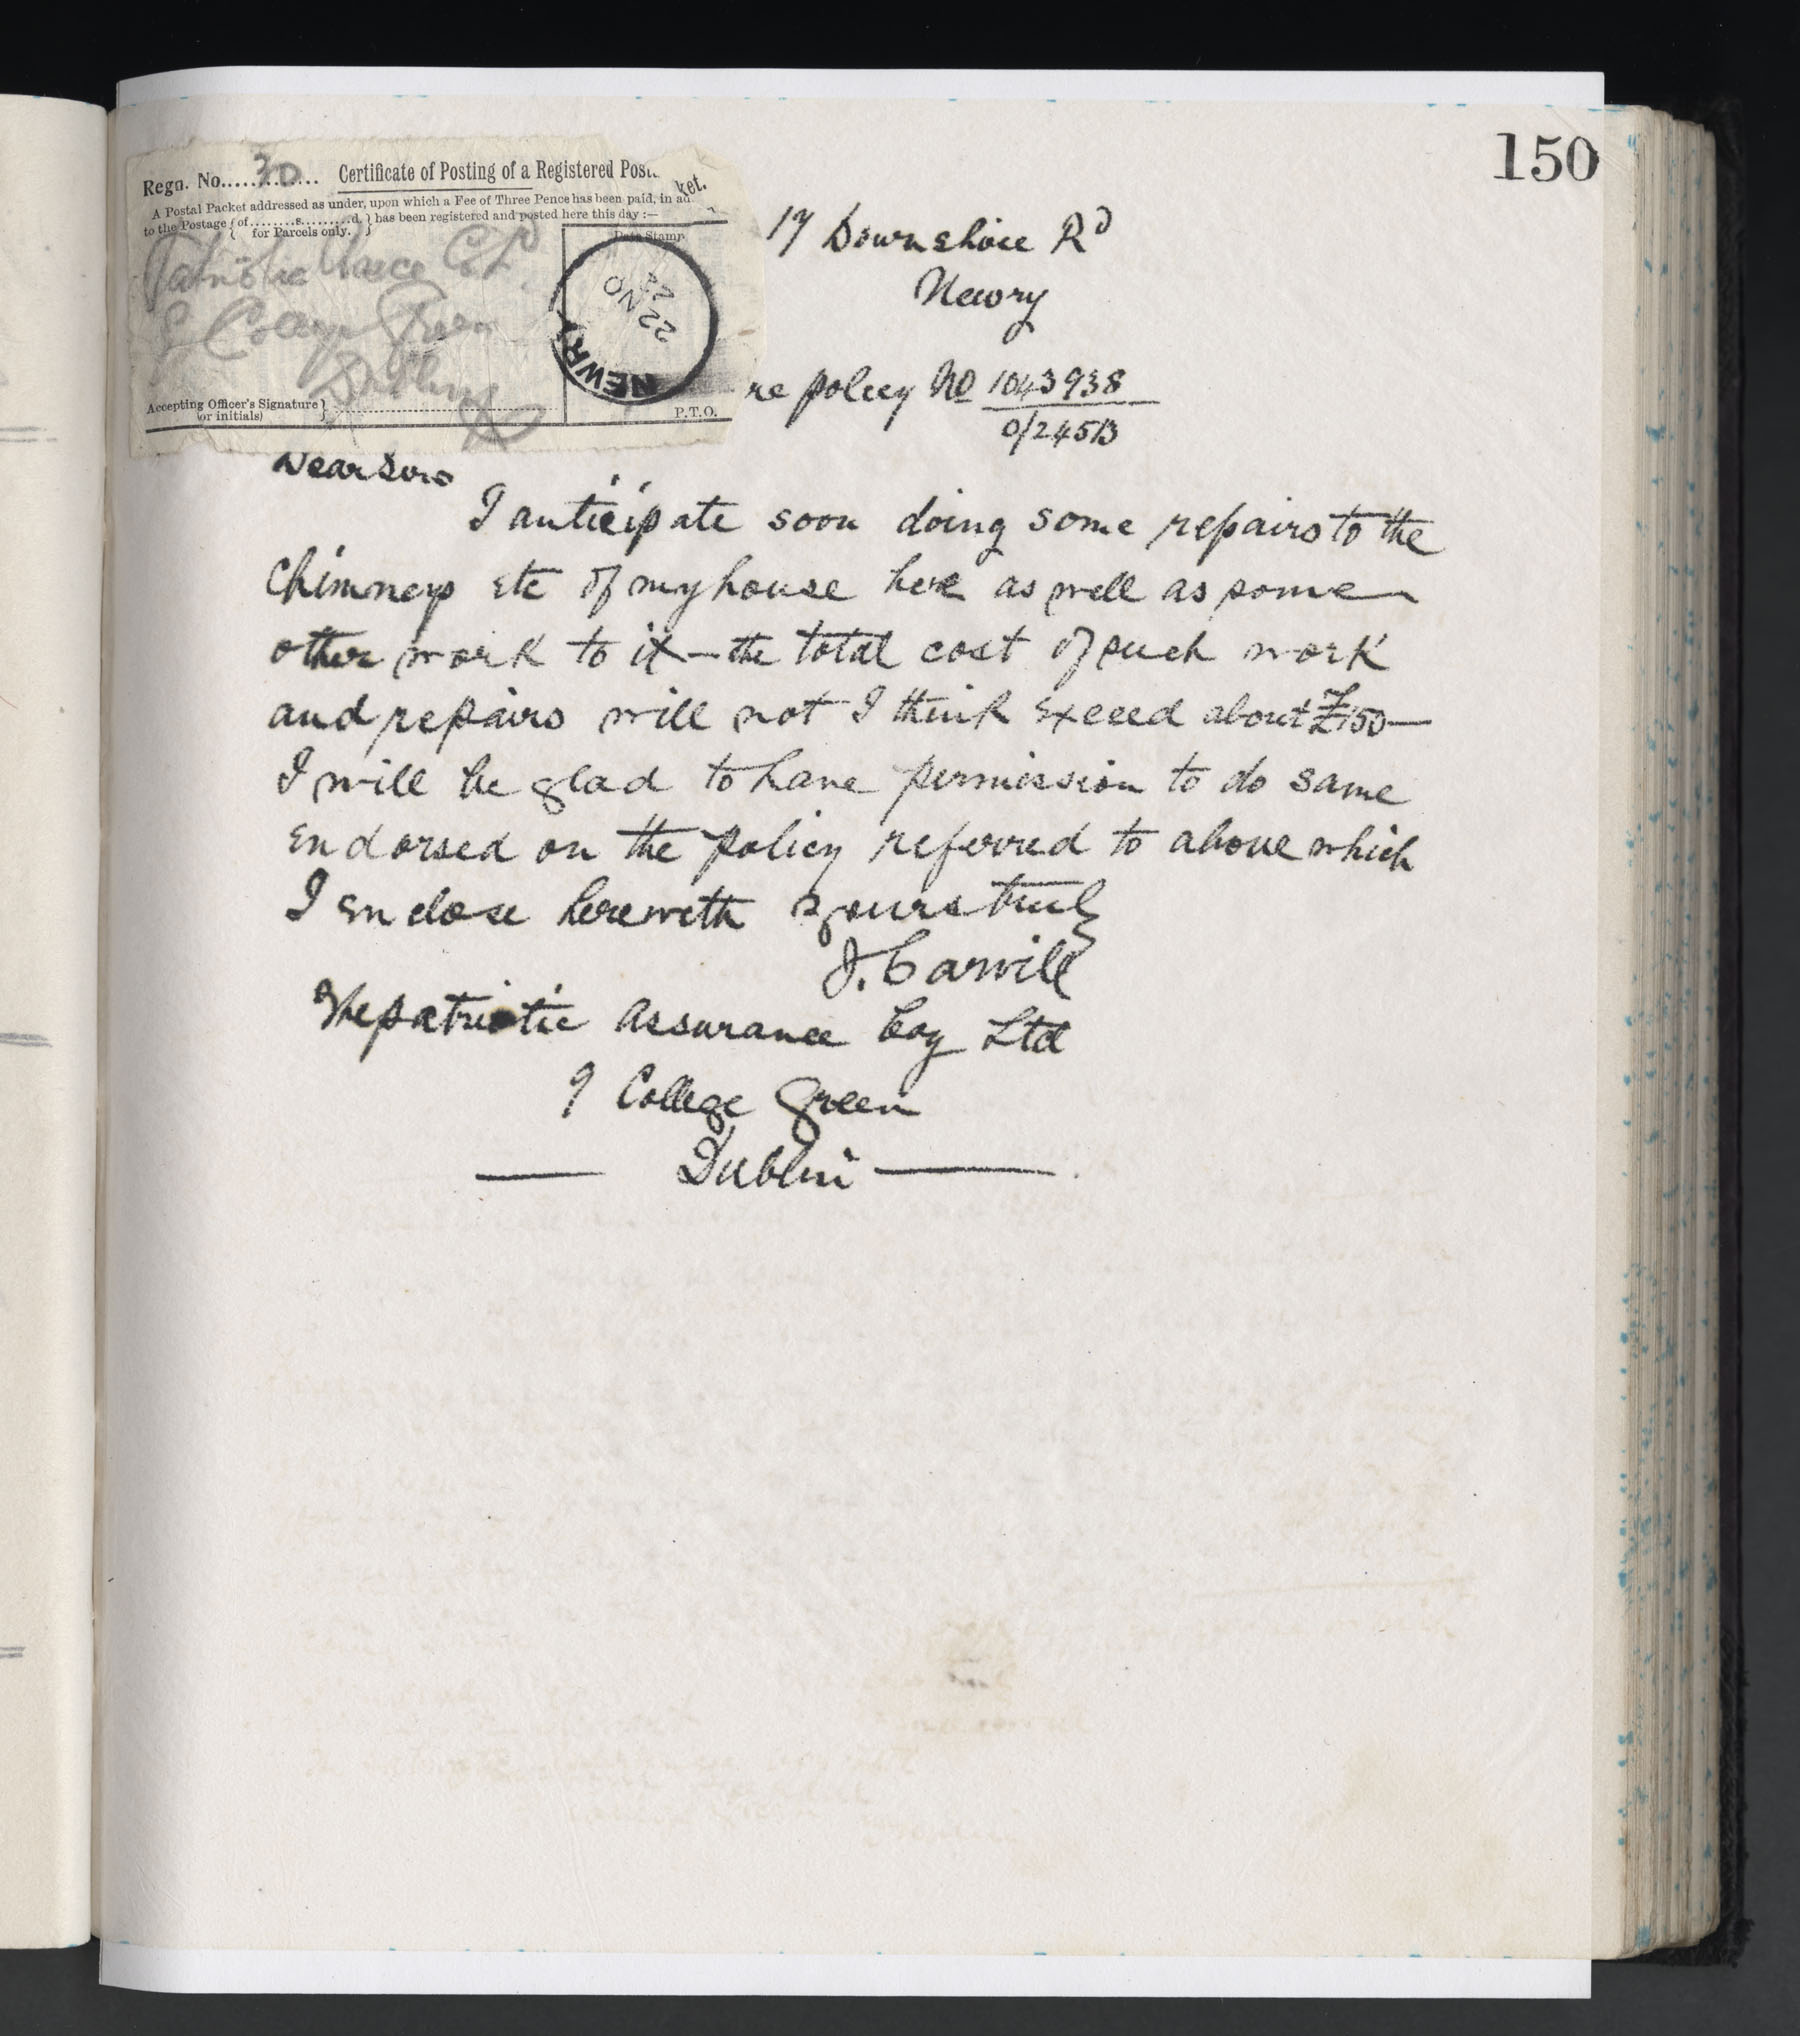 150
Regn. No. 30 Certificate of Posting of a Registered Post
ket.
A Postal Packet addressed as under, upon which a Fee of Three Pence has been paid, in ad
to the Postage { of ........s.........d. } has been registered and posted here this day :—
for Parcels only.
Date Stamp
Patriotic Ssce Co Ld
9 College Green
Dublin
NEWRY
22 NO
Accepting Officer's Signature }
(or initials)
P.T.O.
17 Downshire Rd
Newry
re policy No 1043938
0/245B
Dear Sirs
I anticipate soon doing some repairs to the
chimneys etc of my house here as well as some
other work to it — the total cost of such work
and repairs will not I think exceed about £150 —
I will be glad to have permission to do same
endorsed on the policy referred to above which
I enclose herewith yours truly
J. Carvill
The patriotic assurance Coy Ltd
9 College Green
Dublin